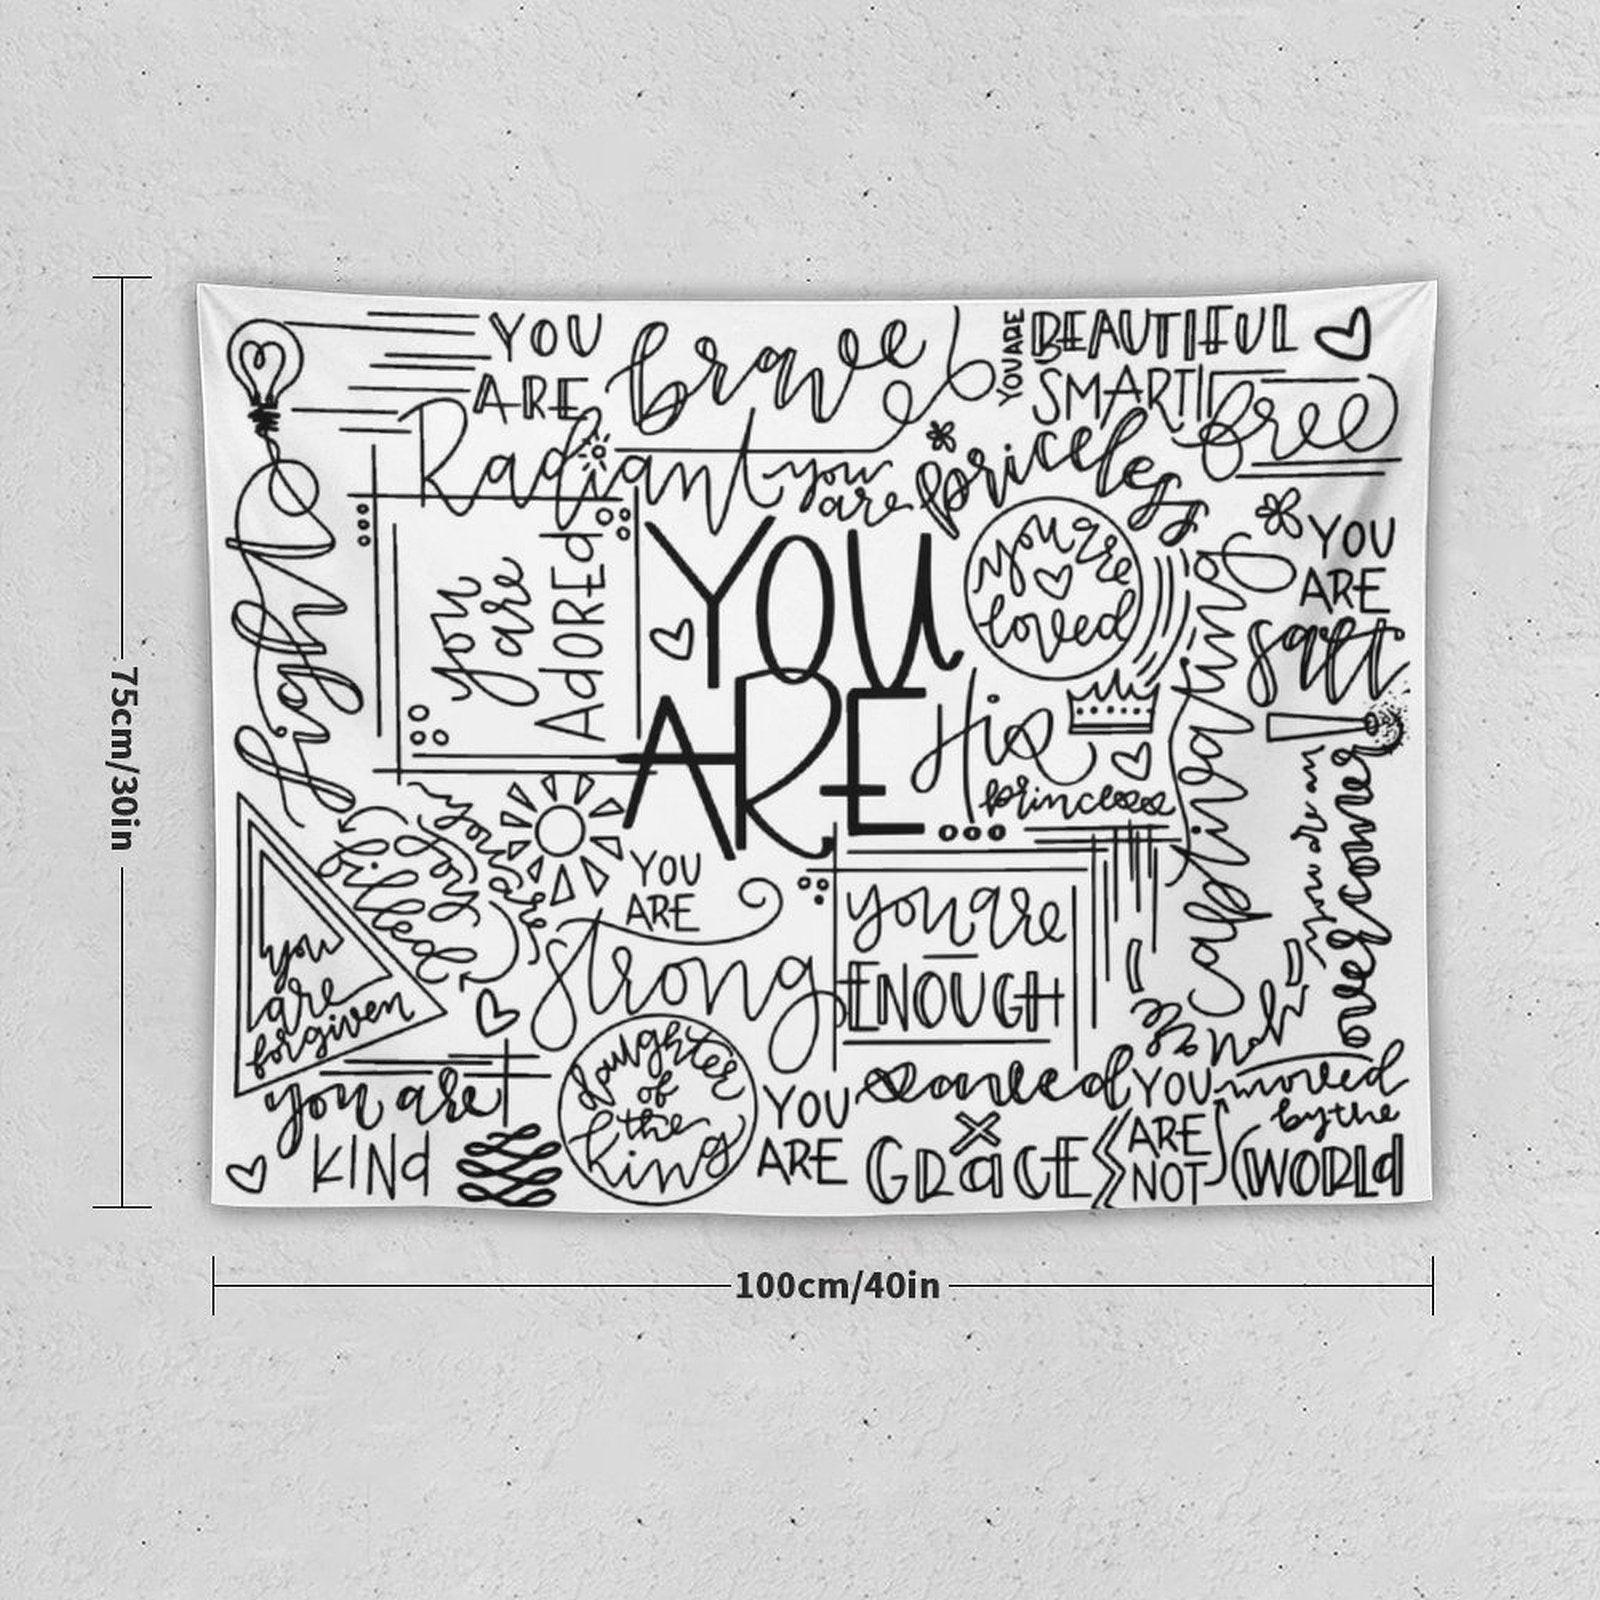 YOU
ARE
brave
YOU ARE
BEAUTIFUL
SMART
free
Radiant
you
are
priceless
light
you
are
AdOREd
YOU
ARE
you're
loved
His
princess
YOU
ARE
salt
captivating
you are an
overcomer
you are
joy
filled
YOU
ARE
strong
you are
ENOUGH
you
are
forgiven
you are
KINd
daughter
of
the
king
YOU
ARE
saved
x
GRaCE
YOU
ARE
NOT
moved
by the
WORLd
75cm/30in
100cm/40in